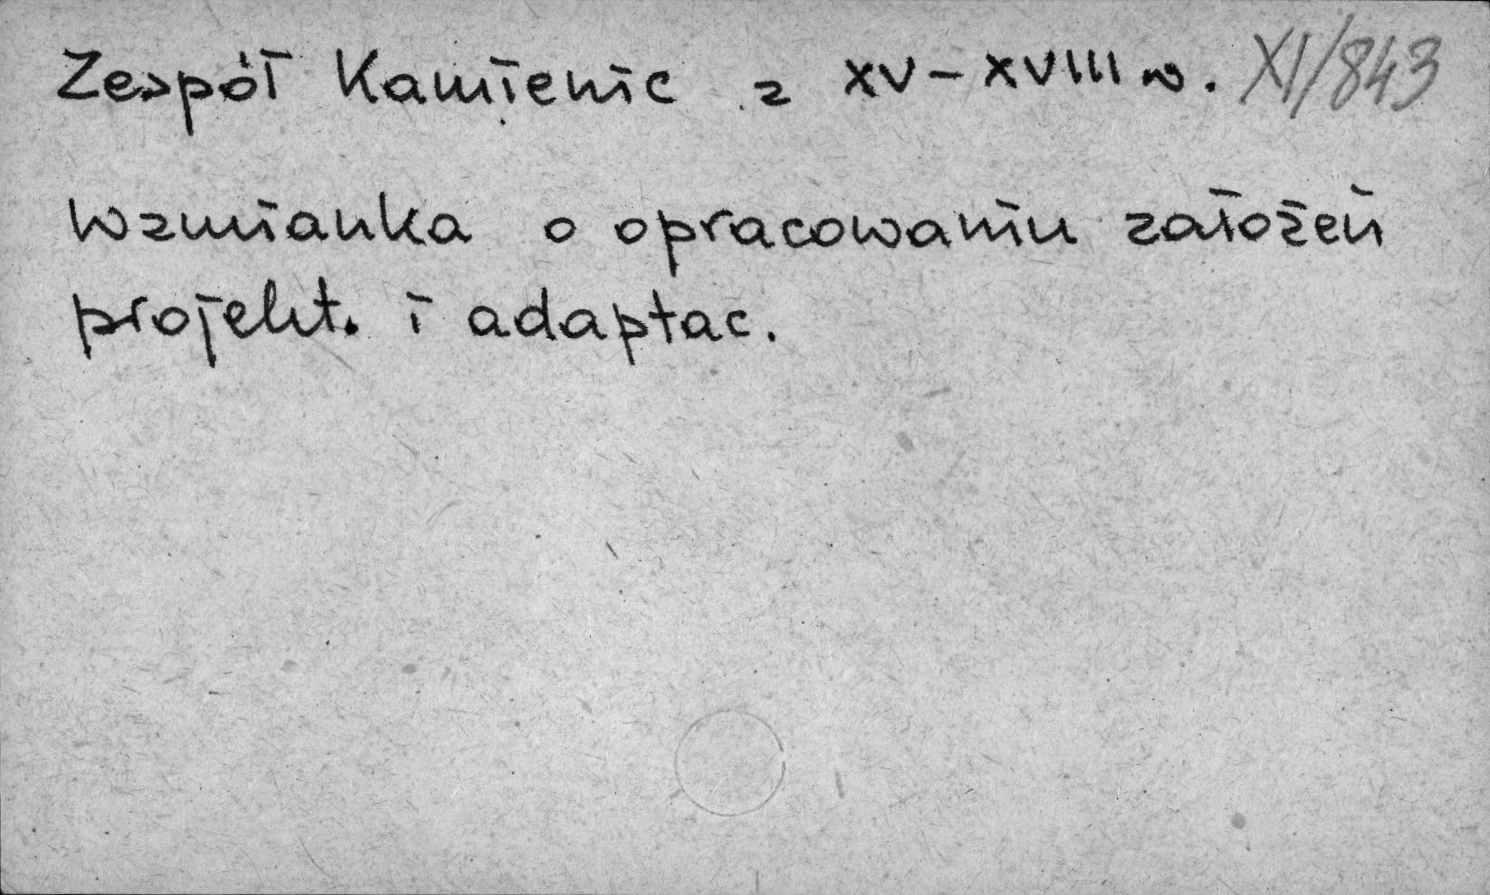 Zespół Kamienic z XV-XVIII w. XI/843
Wzmianka o opracowaniu założeń
projekt. i adaptac.